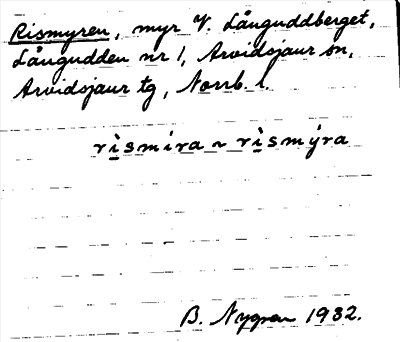 Rismyren, myr V. Långuddberget,
Långudden nr 1, Arvidsjaur sn,
Arvidsjaur tg, Norrb. l.
rìsmíra ~ rìsmýra
B. Nygren 1932.